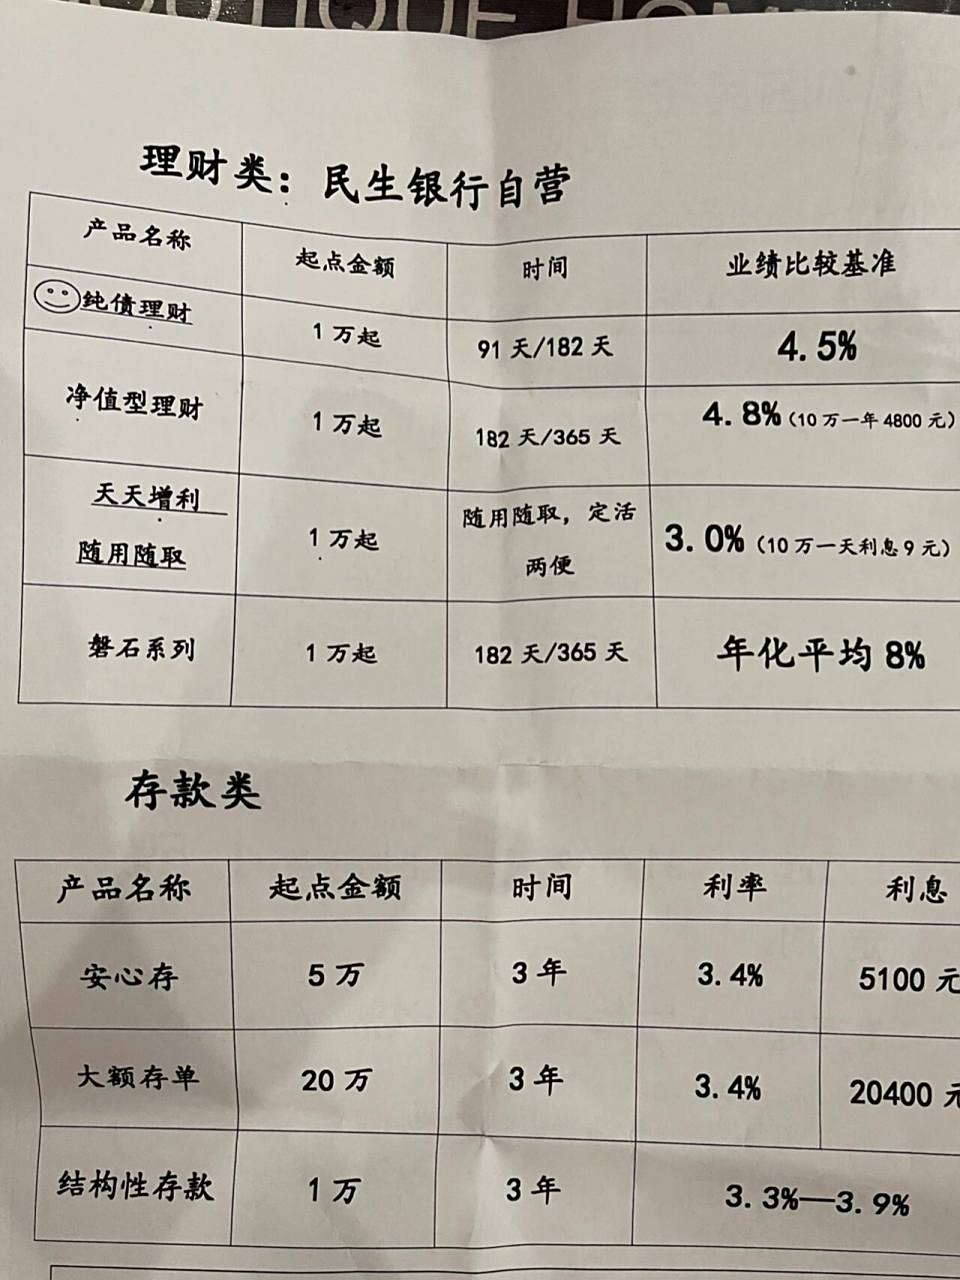 BOUTIQUE HOME
理财类：民生银行自营
产品名称 起点金额 时间 业绩比较基准
纯债理财 1万起 91天/182天 4.5%
净值型理财 1万起 182天/365天 4.8%（10万一年4800元）
天天增利 随用随取，定活
1万起 3.0%（10万一天利息9元）
随用随取 两便
磐石系列 1万起 182天/365天 年化平均8%
存款类
产品名称 起点金额 时间 利率 利息
安心存 5万 3年 3.4% 5100元
大额存单 20万 3年 3.4% 20400元
结构性存款 1万 3年 3.3%—3.9%